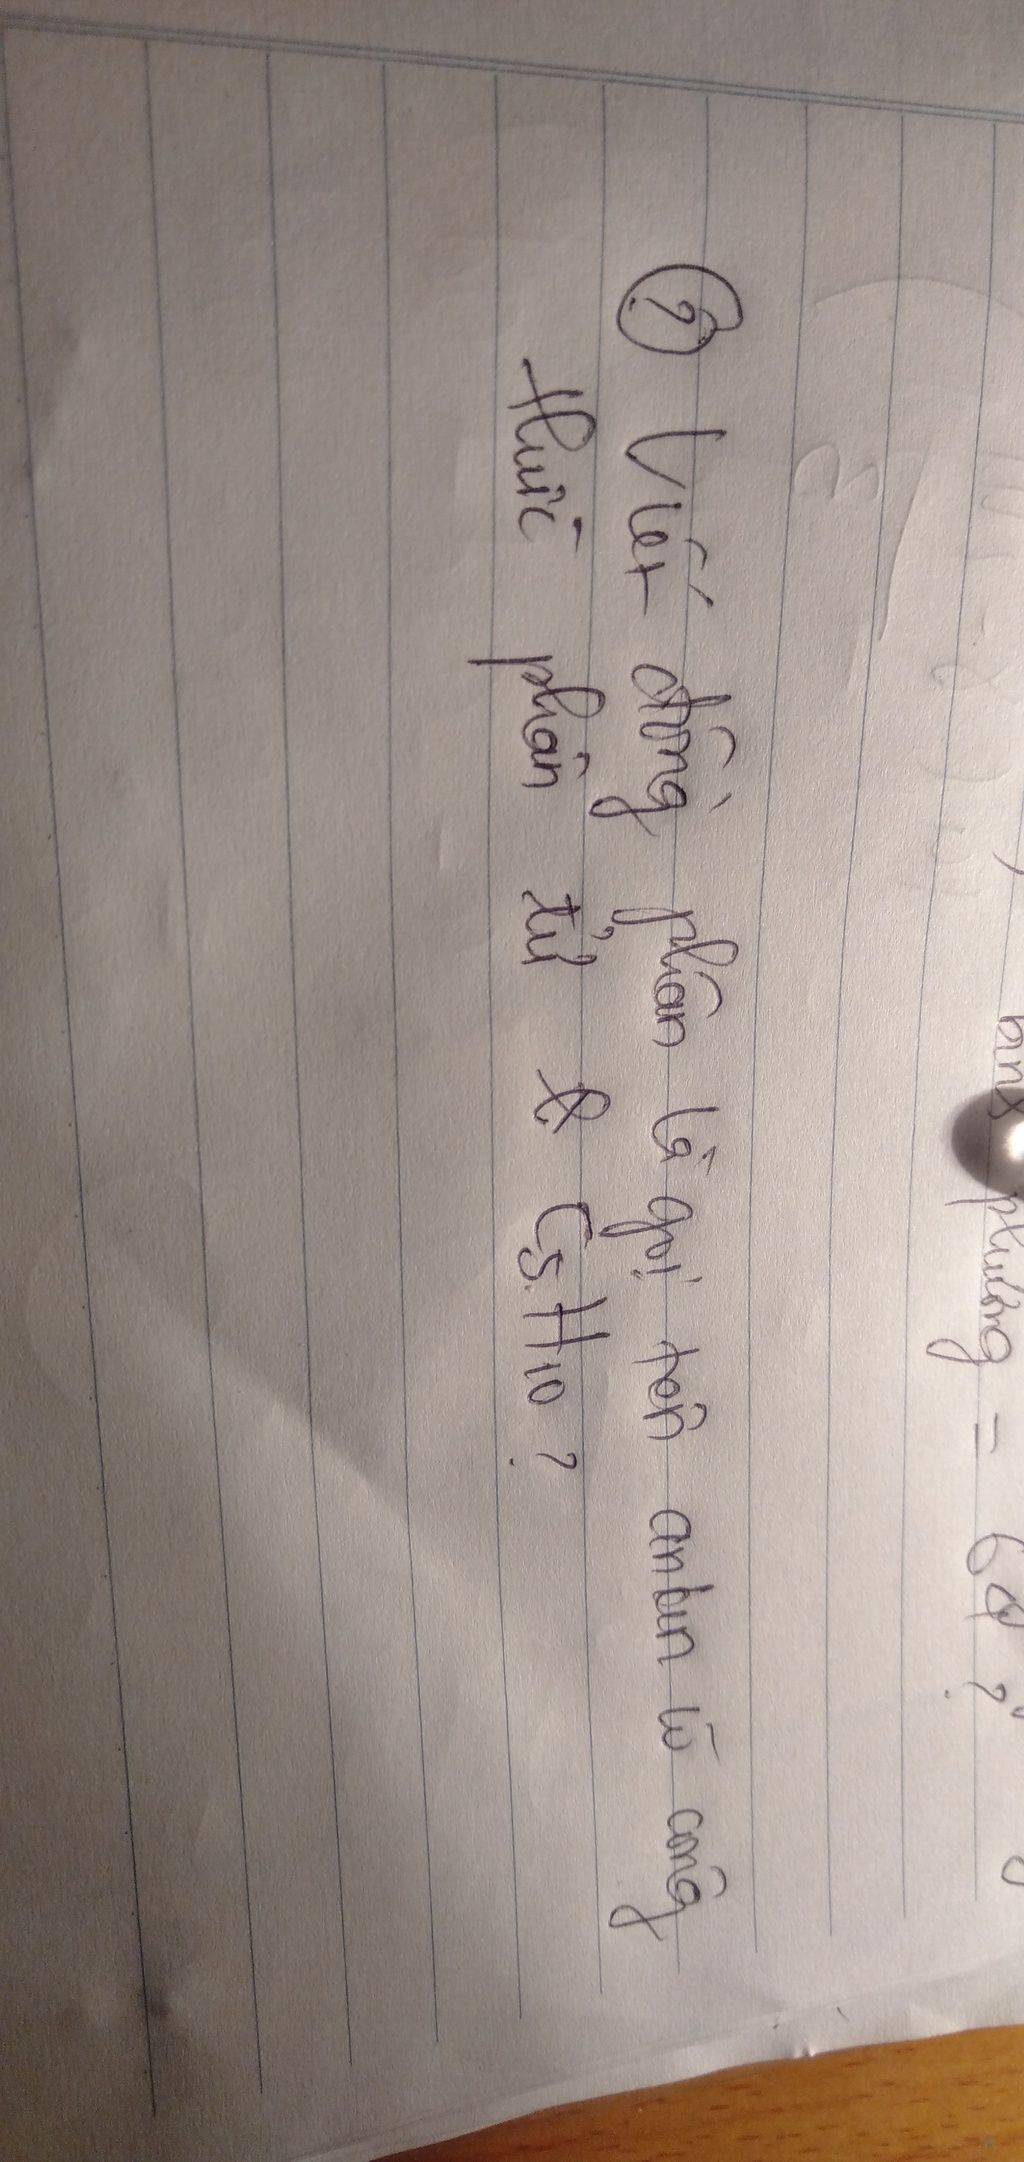 phương = 64 ?
? Viết đồng phân là gọi tên ankin có công
thức phân tử là C5H10 ?